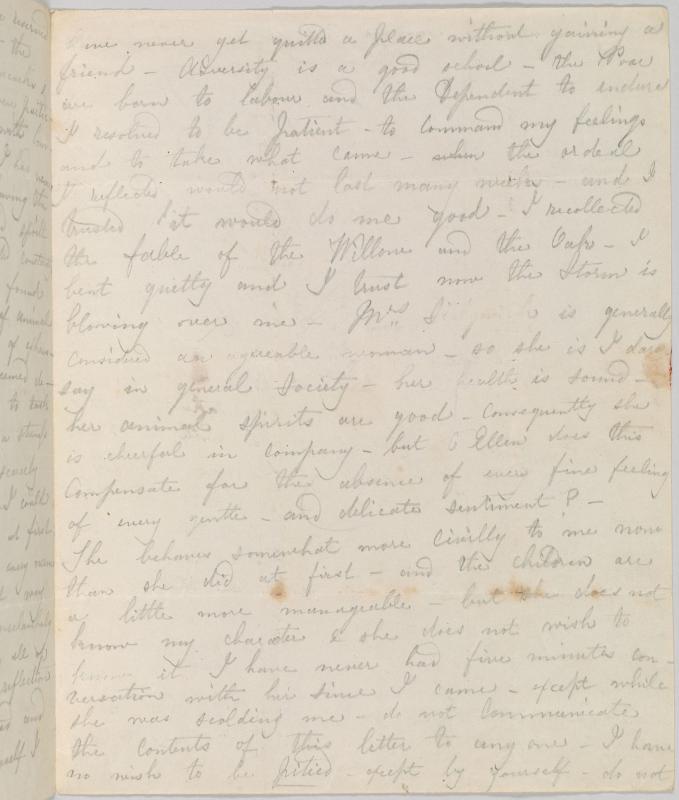 have never yet quitted a place without gaining a
friend - Adversity is a good school - the Poor
are born to labour and the Dependent to endure
I resolved to be patient - to command my feelings
and to take what came - the ordeal
I reflected would not last many weeks - and I
trusted it would do me good - I recollected
the fable of the Willow and the Oak - I
bent quietly and I trust now the Storm is
blowing over me - Mrs Sidgwick is generally
considered an agreeable woman - so she is I dare
say in general Society - her health is sound -
her animal spirits are good - consequently she
is cheerful in company - but O Ellen does this
compensate for the absence of every fine feeling
of every gentle - and delicate sentiment? -
She behaves somewhat more civilly to me now
than she did at first - and the children are
a little more manageable - but she does not
know my character & she does not wish to
know it I have never had five minutes con-
versation with her since I came - except while
she was scolding me - do not communicate
the contents of this letter to any one - I have
no wish to be pitied - except by yourself - do not